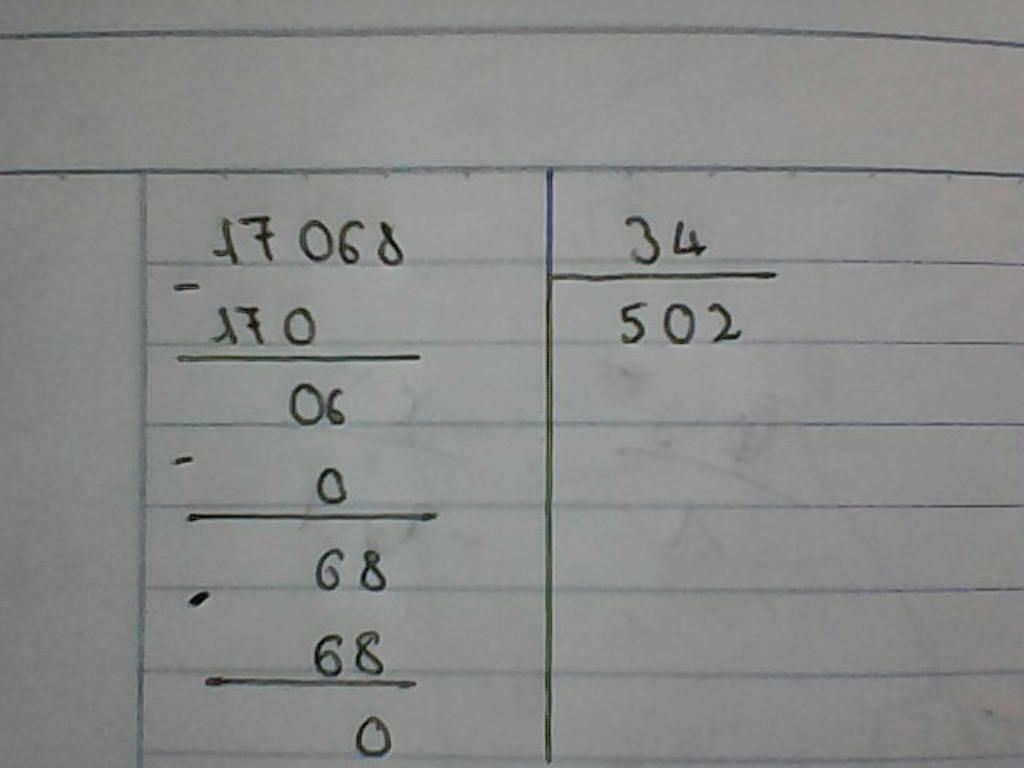 17068 34
- 170 502
06
- 0
68
- 68
0